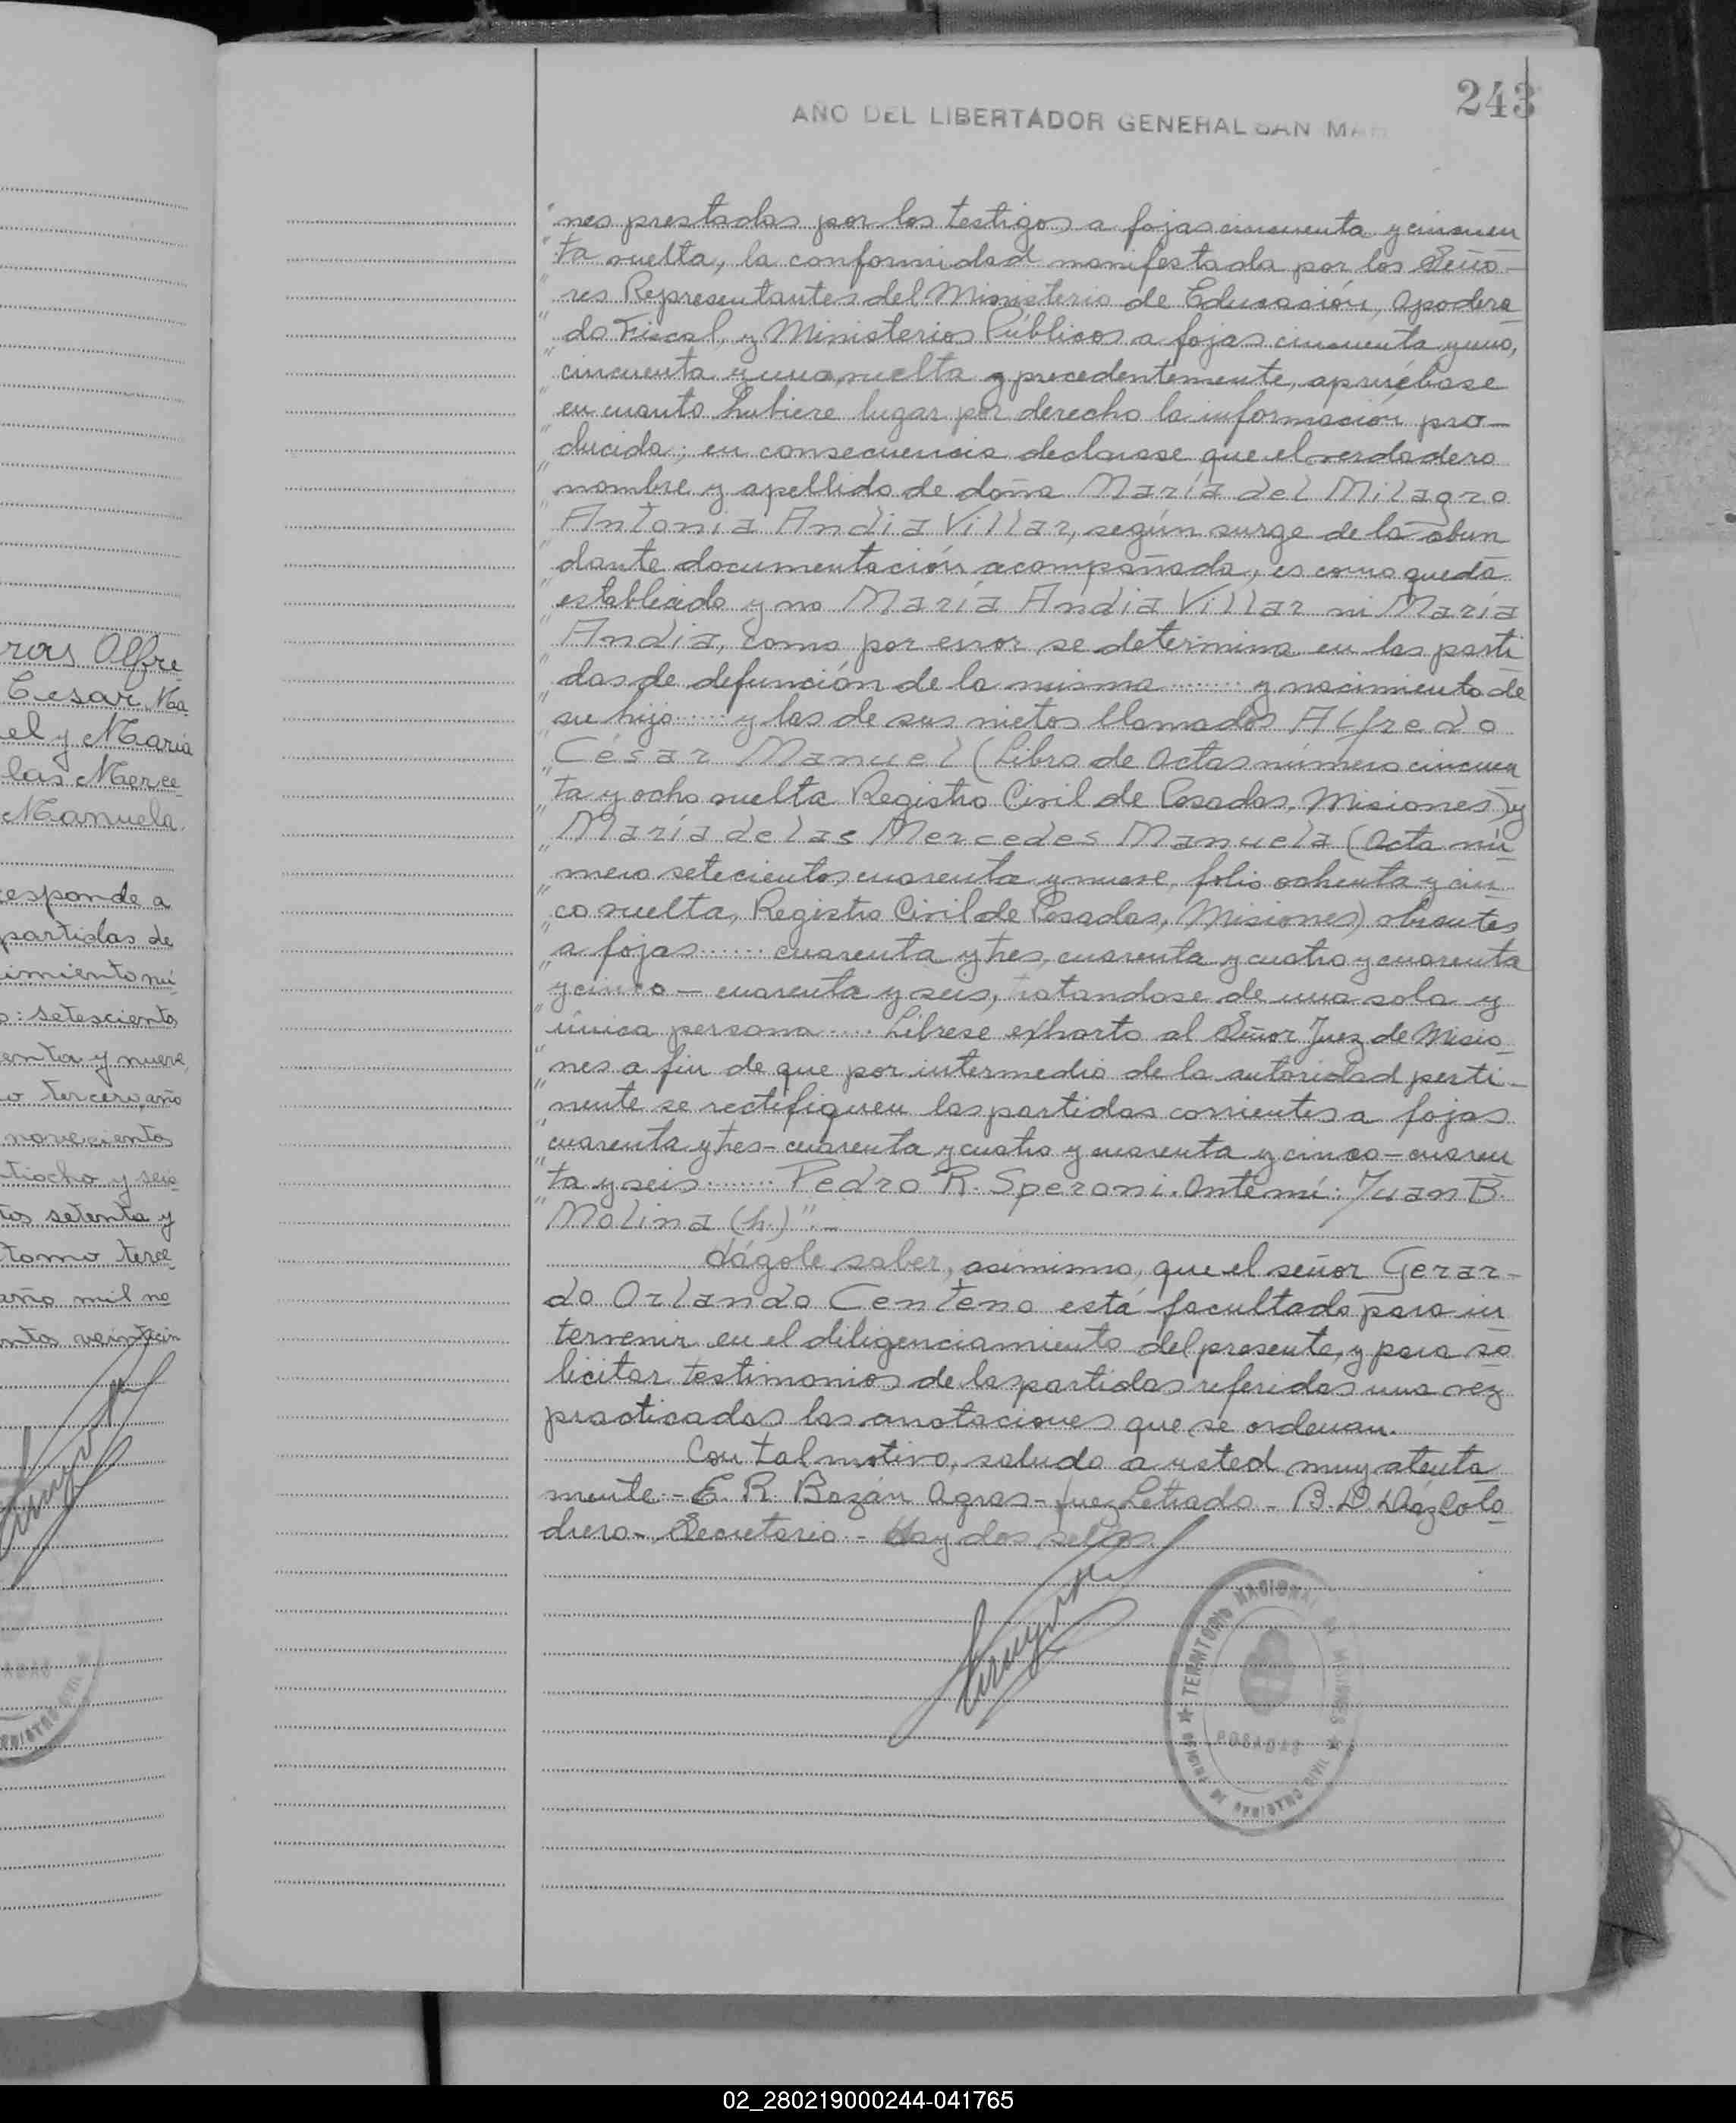 ras Alfre
Cesar Ma
el y María
las Merce
Manuela.
esponde a
partidas de
imiento nú
o: setescienta
enta y nueve,
o tercero, año
novecienta
tiocho y seis
tos setenta y
tomo terce
año mil no
243
AÑO DEL LIBERTADOR GENERAL SAN MAR
"nes prestadas por los testigos a fojas cincuenta y cincuen
"ta vuelta, la conformidad manifestada por los Seño-
"res Representantes del Ministerio de Educación, Apodera
"do Fiscal, y Ministerios Públicos a fojas cincuenta y uno,
"cincuenta y uno vuelta y precedentemente, apruébase
"en cuanto hubiere lugar por derecho la información pro-
"ducida; en consecuencia declarase que el verdadero
"nombre y apellido de doña María del Milagro
"Antonia Andia Villar, según surge de la abun
"dante documentación acompañada, es como queda
"establecido y no María Andia Villar ni María
"Andia, como por error se determina en las parti
"das de defunción de la misma ........ y nacimiento de
"su hijo ..... y las de sus nietos llamados Alfredo
"César Manuel (Libro de Actas número cincuen
"ta y ocho vuelta Registro Civil de Posadas, Misiones) y
"María de las Mercedes Manuela (Acta nú
"mero setecientos cuarenta y nueve, folio ochenta y cin
"co vuelta, Registro Civil de Posadas, Misiones) obrantes
"a fojas ...... cuarenta y tres, cuarenta y cuatro y cuarenta
"y cinco - cuarenta y seis, tratandose de una sola y
"única persona .... Líbrese exhorto al Señor Juez de Misio-
"nes a fin de que por intermedio de la autoridad perti-
"nente se rectifiquen las partidas corrientes a fojas
"cuarenta y tres - cuarenta y cuatro y cuarenta y cinco - cuaren
"ta y seis ....... Pedro R. Speroni. Ante mí: Juan B.
"Molina (h.)".-
Hágole saber, asimismo, que el señor Gerar-
do Orlando Centeno está facultado para in
tervenir en el diligenciamiento del presente, y para so
licitar testimonios de las partidas referidas una vez
practicadas las anotaciones que se ordenan.
Con tal motivo, saludo a usted muy atenta
mente.- E. R. Bazán Agras - Juez Letrado - B. D. Díaz Colo
drero - Secretario - Hay dos sellos.
TERRITORIO NACIONAL DE MISIONES
POSADAS
OFICINA DE REGISTRO CIVIL
02_280219000244-041765